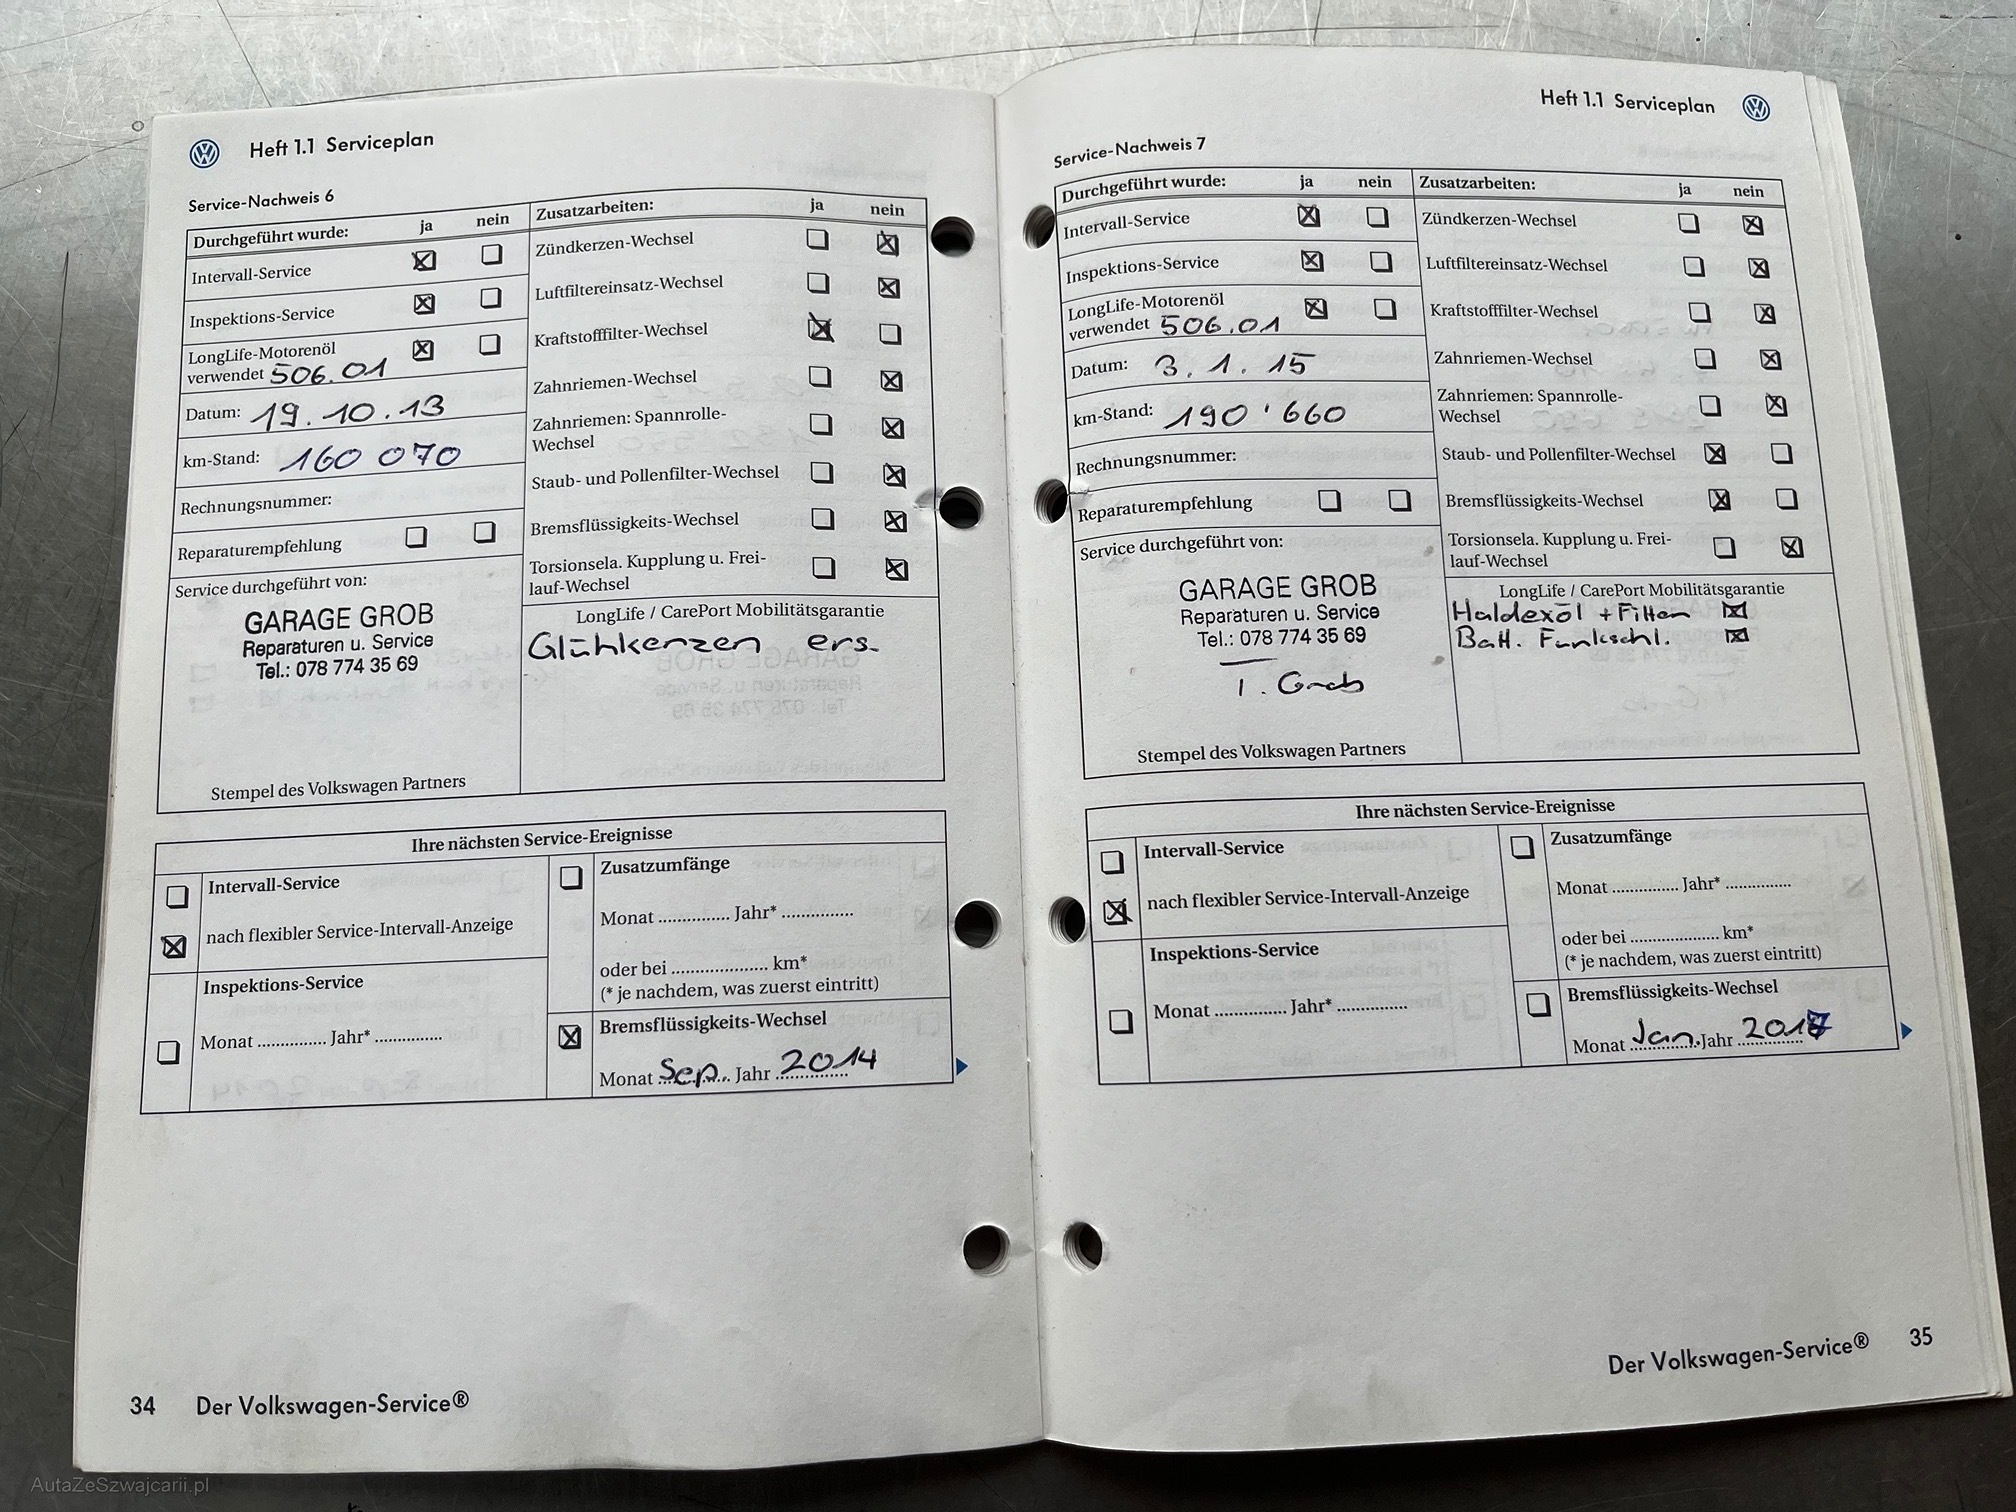 Heft 1.1 Serviceplan
Service-Nachweis 6
Durchgeführt wurde: ja nein
Intervall-Service
Inspektions-Service
LongLife-Motorenöl
verwendet 506.01
Datum: 19.10.13
km-Stand: 160 070
Rechnungsnummer:
Reparaturempfehlung
Service durchgeführt von:
GARAGE GROB
Reparaturen u. Service
Tel.: 078 774 35 69
Stempel des Volkswagen Partners
Zusatzarbeiten: ja nein
Zündkerzen-Wechsel
Luftfiltereinsatz-Wechsel
Kraftstofffilter-Wechsel
Zahnriemen-Wechsel
Zahnriemen: Spannrolle-
Wechsel
Staub- und Pollenfilter-Wechsel
Bremsflüssigkeits-Wechsel
Torsionsela. Kupplung u. Frei-
lauf-Wechsel
LongLife / CarePort Mobilitätsgarantie
Glühkerzen ers.
Ihre nächsten Service-Ereignisse
Intervall-Service
nach flexibler Service-Intervall-Anzeige
Inspektions-Service
Monat .............. Jahr* ..............
Zusatzumfänge
Monat .............. Jahr* ..............
oder bei .................... km*
(* je nachdem, was zuerst eintritt)
Bremsflüssigkeits-Wechsel
Monat Sep. Jahr 2014
34 Der Volkswagen-Service®
Heft 1.1 Serviceplan
Service-Nachweis 7
Durchgeführt wurde: ja nein
Intervall-Service
Inspektions-Service
LongLife-Motorenöl
verwendet 506.01
Datum: 3.1.15
km-Stand: 190'660
Rechnungsnummer:
Reparaturempfehlung
Service durchgeführt von:
GARAGE GROB
Reparaturen u. Service
Tel.: 078 774 35 69
T. Grob
Stempel des Volkswagen Partners
Zusatzarbeiten: ja nein
Zündkerzen-Wechsel
Luftfiltereinsatz-Wechsel
Kraftstofffilter-Wechsel
Zahnriemen-Wechsel
Zahnriemen: Spannrolle-
Wechsel
Staub- und Pollenfilter-Wechsel
Bremsflüssigkeits-Wechsel
Torsionsela. Kupplung u. Frei-
lauf-Wechsel
LongLife / CarePort Mobilitätsgarantie
Haldexöl + Filter
Batt. Funkschl.
Ihre nächsten Service-Ereignisse
Intervall-Service
nach flexibler Service-Intervall-Anzeige
Inspektions-Service
Monat .............. Jahr* ..............
Zusatzumfänge
Monat .............. Jahr* ..............
oder bei .................... km*
(* je nachdem, was zuerst eintritt)
Bremsflüssigkeits-Wechsel
Monat Jan. Jahr 2017
Der Volkswagen-Service® 35
AutaZeSzwajcarii.pl